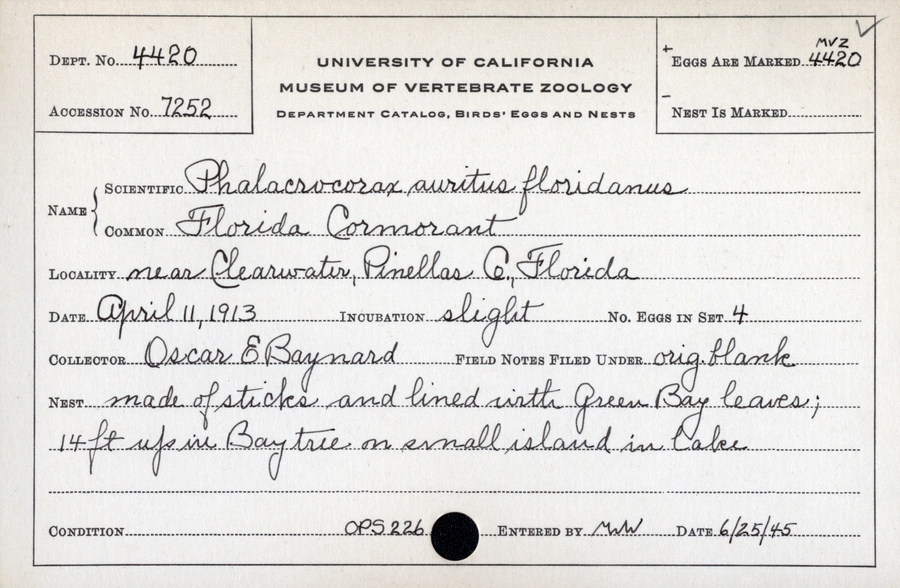 DEPT. No. 4420
ACCESSION No. 7252
UNIVERSITY OF CALIFORNIA
MUSEUM OF VERTEBRATE ZOOLOGY
DEPARTMENT CATALOG, BIRDS' EGGS AND NESTS
MVZ
+ EGGS ARE MARKED 4420
- NEST IS MARKED
NAME
SCIENTIFIC Phalacrocorax auritus floridanus
COMMON Florida Cormorant
LOCALITY near Clearwater, Pinellas Co., Florida
DATE April 11, 1913 INCUBATION slight No. EGGS IN SET 4
COLLECTOR Oscar E Baynard FIELD NOTES FILED UNDER orig. blank
NEST made of sticks and lined with Green Bay leaves;
14 ft up in Bay tree on small island in Lake
CONDITION OPS 226 ENTERED BY MWW DATE 6/25/45